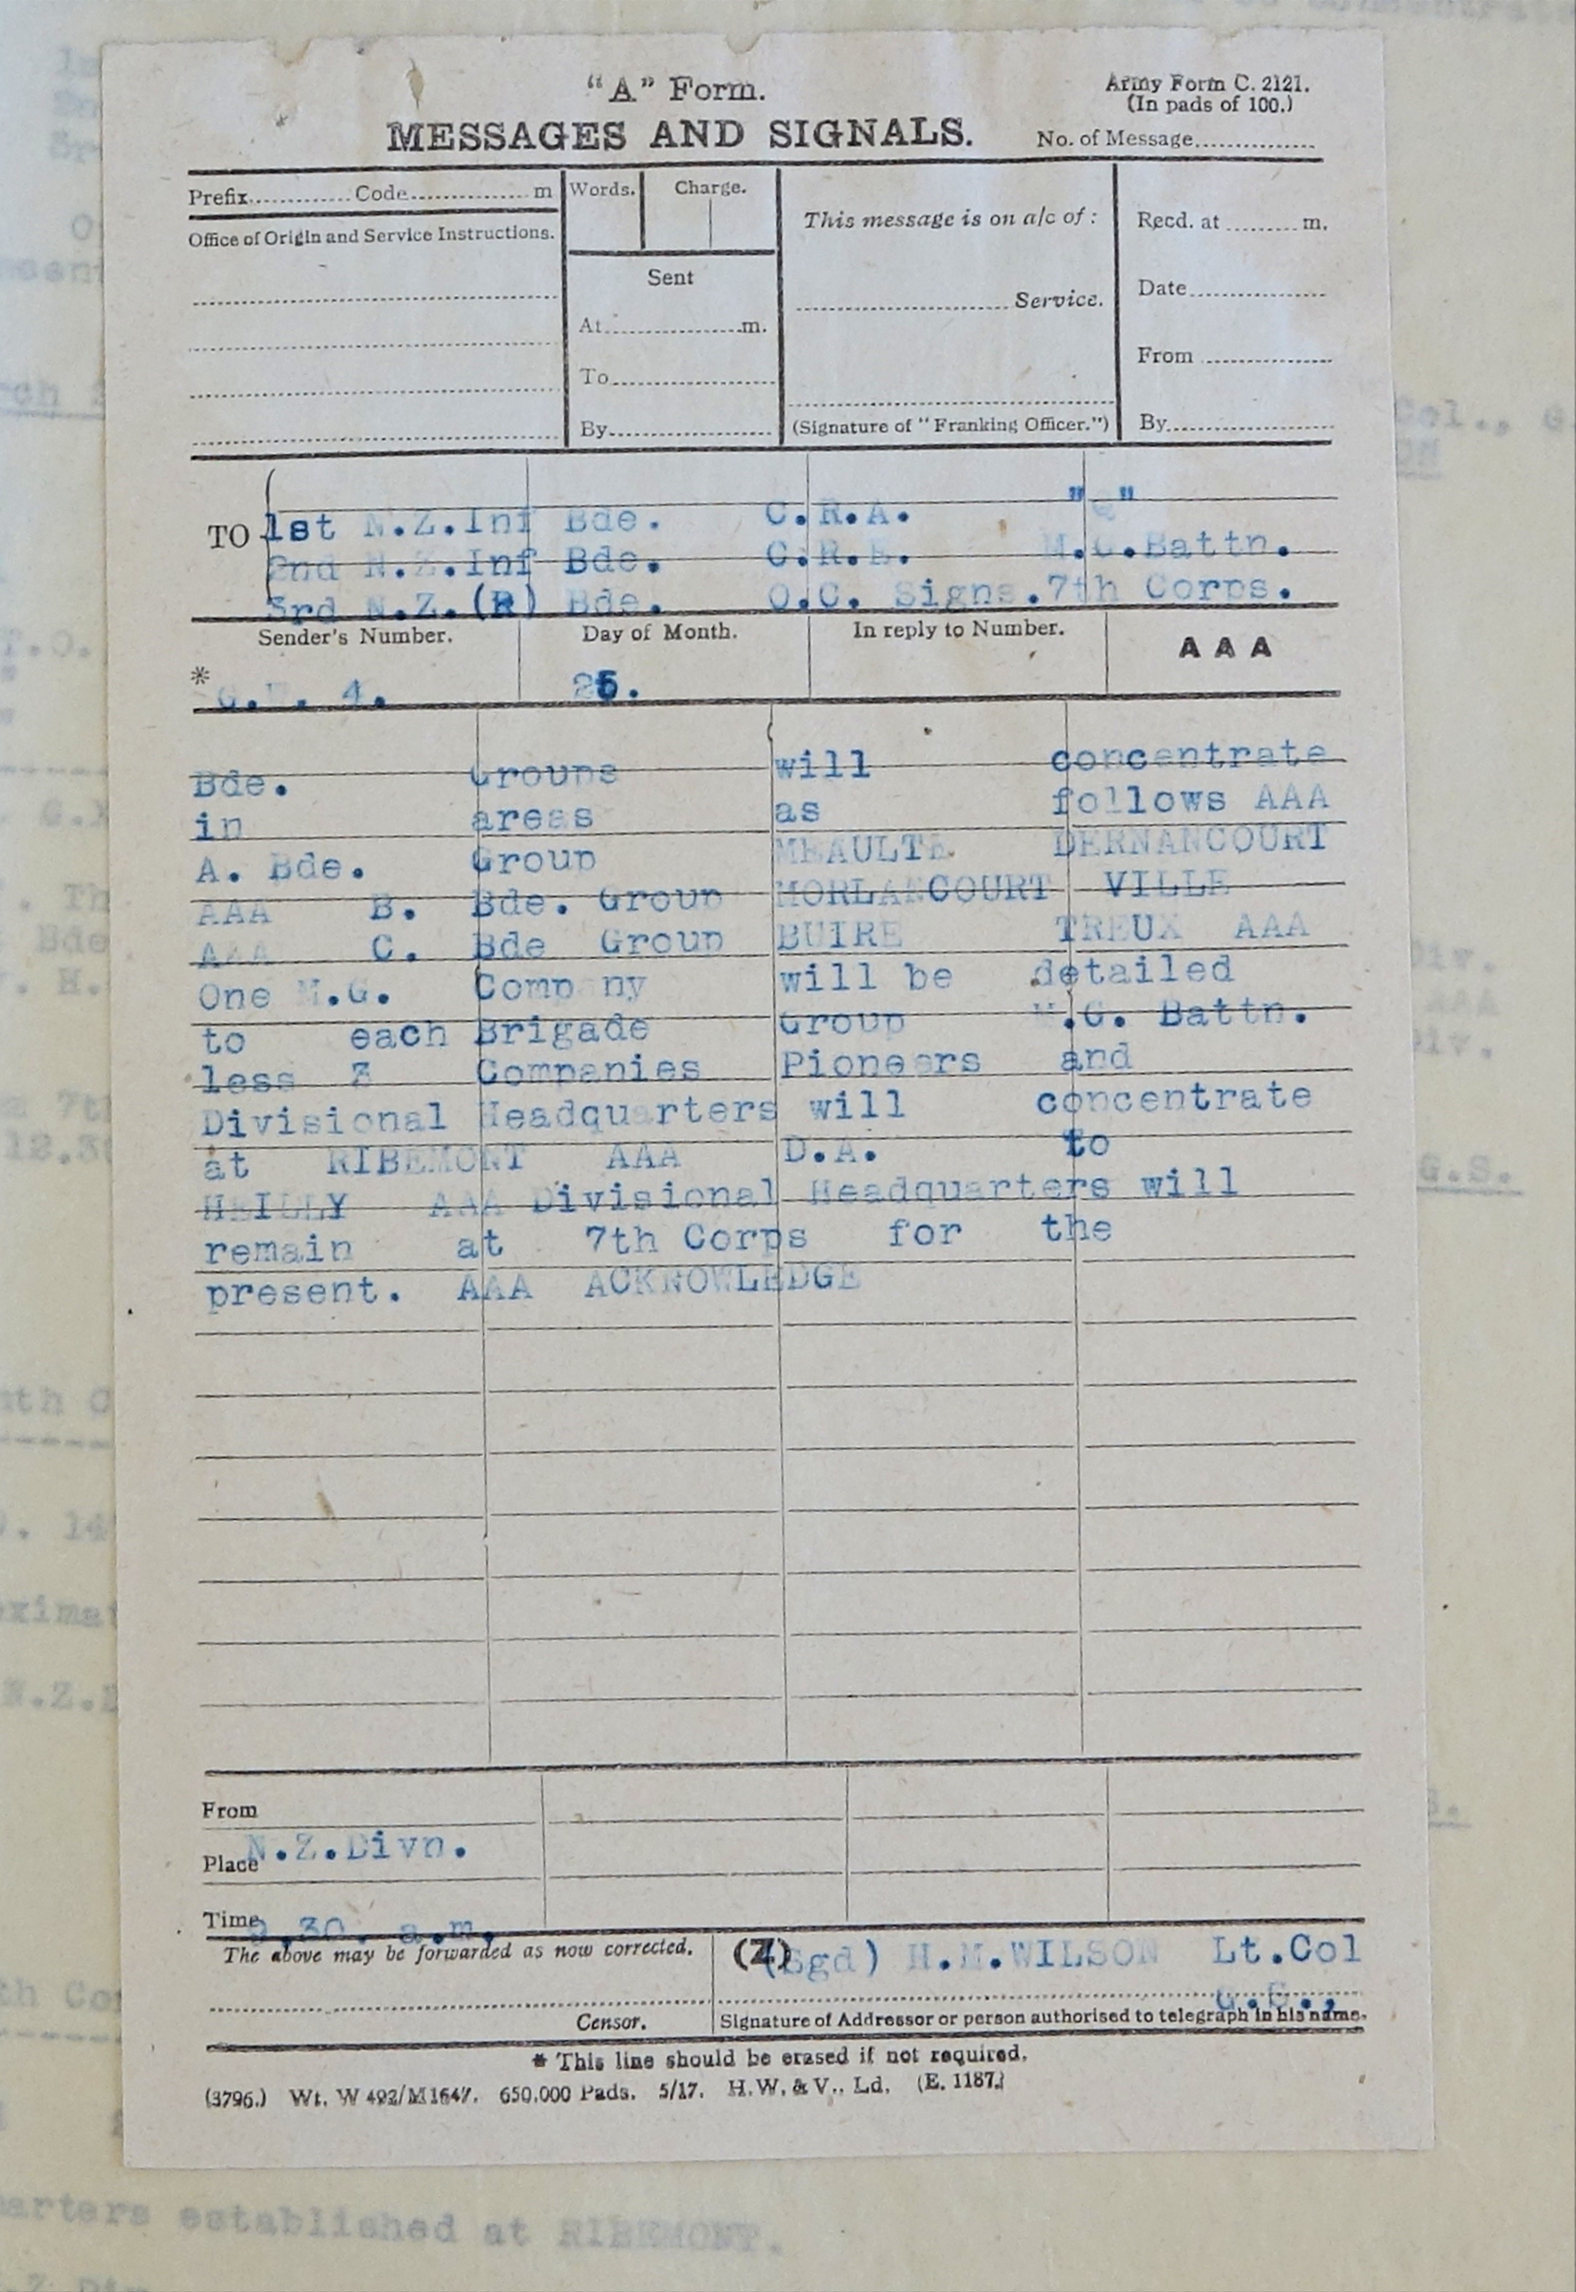 "A" Form.
Army Form C. 2121.
(In pads of 100.)
MESSAGES AND SIGNALS.
No. of Message...............
Prefix............ Code............... m
Words.
Charge.
This message is on a/c of :
Recd. at ......... m.
Office of Origin and Service Instructions.
Sent
Date...............
............... Service.
At...............m.
From ...............
To...............
By...............
(Signature of "Franking Officer.")
By...............
TO
1st N.Z.Inf Bde. C.R.A. "Q"
2nd N.Z.Inf Bde. C.R.E. M.G.Battn.
3rd N.Z.(R) Bde. O.C. Signs.7th Corps.
Sender's Number.
Day of Month.
In reply to Number.
AAA
* G. 4.
25.
Bde. Groups will concentrate
in areas as follows AAA
A. Bde. Group MEAULTE DERNANCOURT
AAA B. Bde. Group MORLANCOURT VILLE
AAA C. Bde Group BUIRE TREUX AAA
One M.G. Company will be detailed
to each Brigade Group M.G. Battn.
less 3 Companies Pioneers and
Divisional Headquarters will concentrate
at RIBEMONT AAA D.A. to
HEILLY AAA Divisional Headquarters will
remain at 7th Corps for the
present. AAA ACKNOWLEDGE
From
Place N.Z.Divn.
Time 9.30. a.m.
The above may be forwarded as now corrected.
(Z)
(Sgd) H.M.WILSON Lt.Col
G.S.,
Censor.
Signature of Addressor or person authorised to telegraph in his name.
* This line should be erased if not required.
(3796.) Wt. W 492/M1647. 650,000 Pads. 5/17. H.W. & V., Ld. (E. 1187.)
arters established at RIBEMONT.